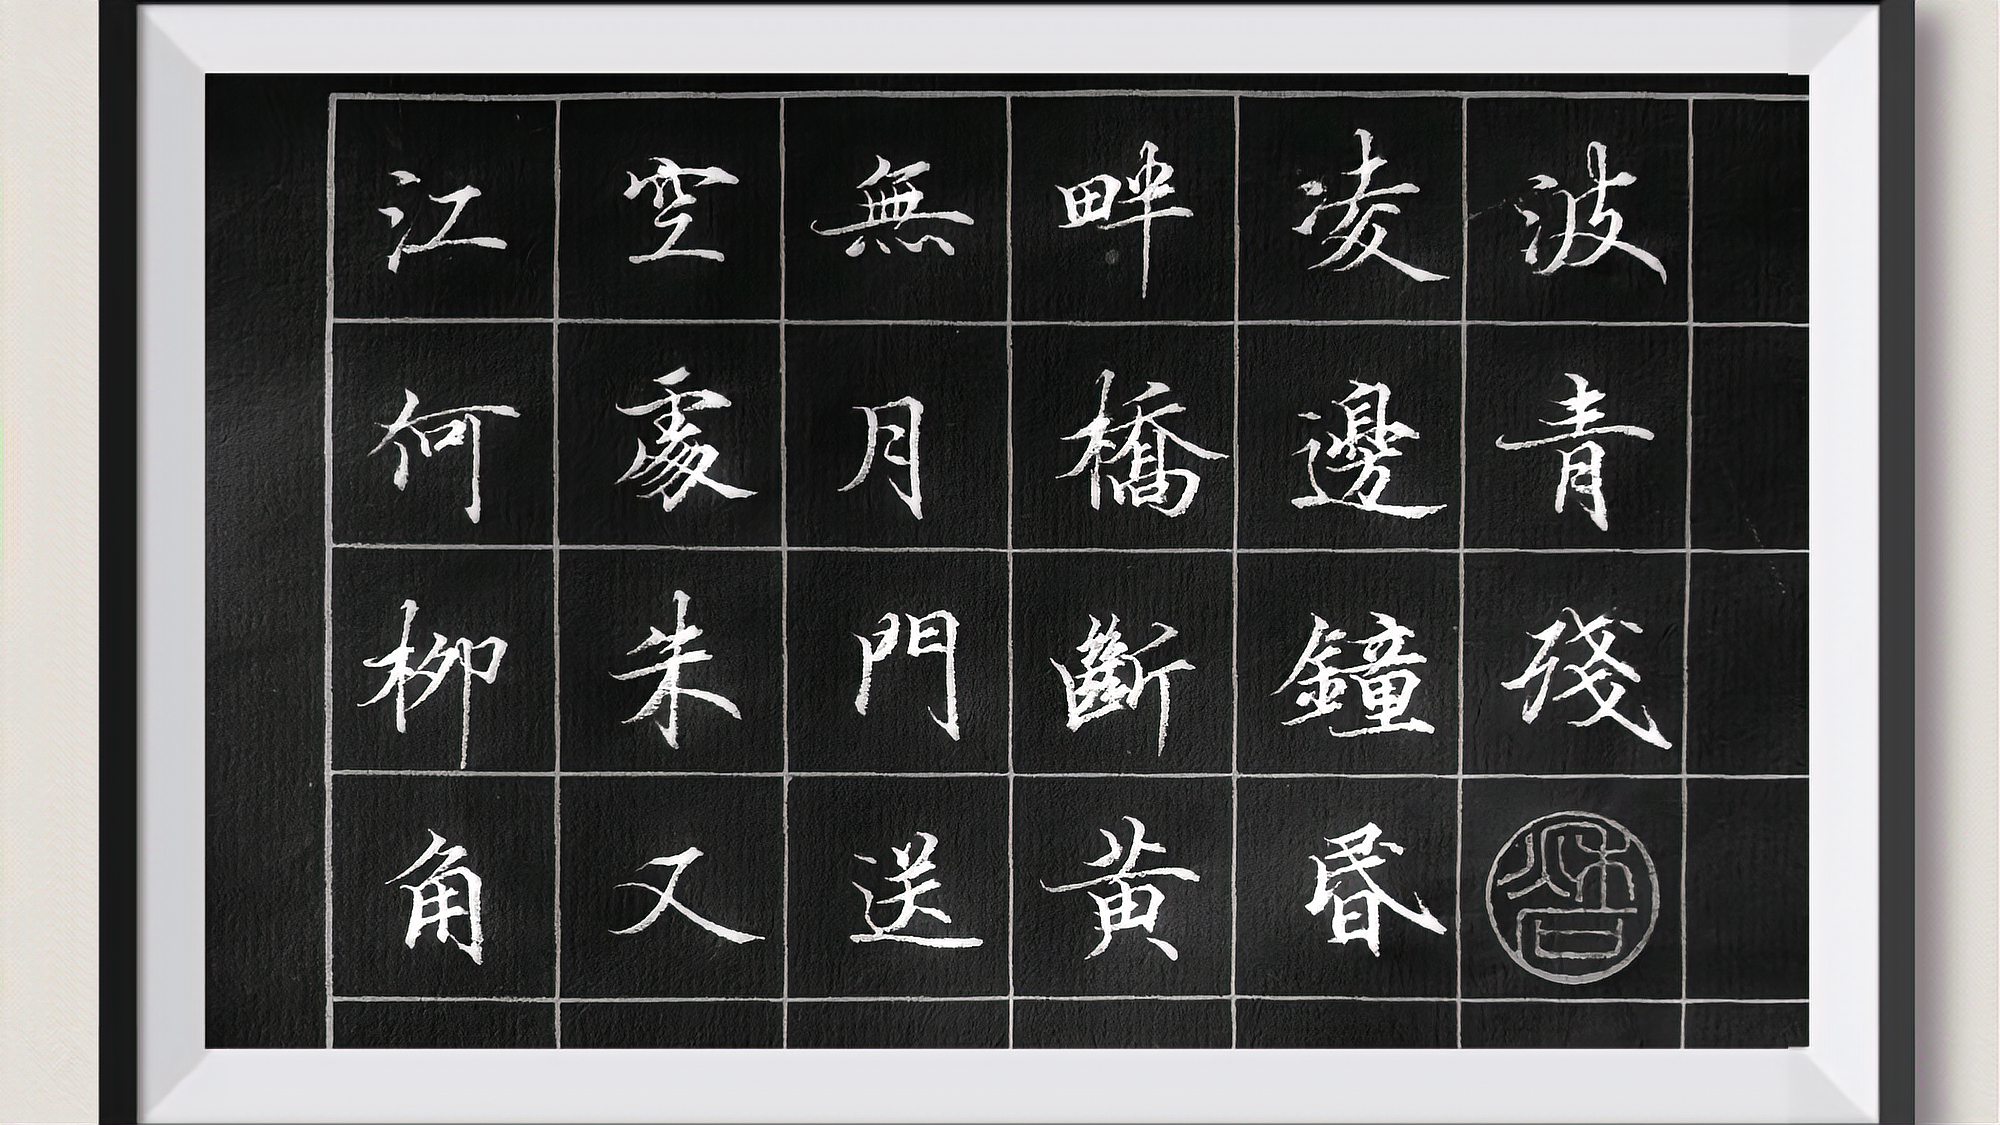 江空無畔凌波
何處月橋邊青
柳朱門斷鐘殘
角又送黄昬